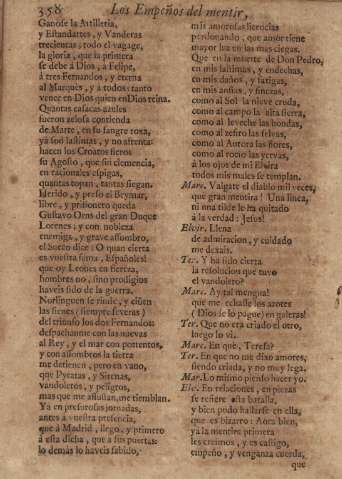 358 Los Empeños del mentir,
Ganose la Artilleria,
y Estandartes, y Vanderas
trecientas; todo el vagage,
la gloria, que la primera
se debe à Dios, à Felipe,
à tres Fernandos, y eterna
al Marquès, y à todos: tanto
vence en Dios quien en Dios reina.
Quantas casacas azules
fueron zelosa contienda
de Marte, en su sangre roxa,
ya son lastimas, y no afrenta:
hacen los Croatos fieros
su Agosto, que sin clemencia,
en racionales espigas,
quantas topan, tantas siegan.
Herido, y preso el Beymar,
libre, y prisionero queda
Gustavo Orns del gran Duque
Lorenes; y con nobleza
enemiga, y grave assombro,
el Sueco dice: O quan cierta
es vuestra fama, Españoles!
que oy Leones en fiereza,
hombres no, sino prodigios
haveis sido de la guerra.
Norlinguen se rinde, y ciñen
las sienes (siempre severas)
del triunfo los dos Fernandos:
despachanme con las nuevas
al Rey, y el mar con tormentos,
y con assombros la tierra
me detienen; pero en vano,
que Pyratas, y Sierras,
vandoleros, y peligros,
mas que me assustan, me tiemblan.
Ya en presurosas jornadas,
antes à vuestra presencia,
que à Madrid, llego, y primero
à esta dicha, que à sus puertas:
lo demàs lo haveis sabido,
mis amorosas licencias
perdonando, que amor tiene
mayor luz en las mas ciegas.
Que en la muerte de Don Pedro,
en mis lastimas, y endechas,
en mis daños, y fatigas,
en mis ansias, y finezas,
como al Sol la nieve cruda,
como al campo la alta sierra,
como al leveche las hondas,
como al zefiro las selvas,
como al Aurora las flores,
como al rocio las yervas,
à los ojos de mi Elvira
todos mis males se templan.
Marc. Valgate el diablo mil veces,
que gran mentira! Una linea,
ni una tilde le ha quitado
à la verdad: Jesus!
Elvir. Llena
de admiracion, y cuidado
me dexais.
Ter. Y ha sido cierta
la resolucion que tuvo
el vandolero?
Marc. Ay tal mengua!
que me echasse los azotes
(Dios se lo pague) en galeras!
Ter. Que no era criado el otro,
luego lo vi.
Marc. En què, Teresa?
Ter. En que no me dixo amores,
siendo criada, y no muy lega.
Mar. Lo mismo pienso hacer yo.
Elv. En relaciones, en piezas
se refiere esta batalla,
y bien pudo hallarse en ella,
que es bizarro: Aora bien,
ya la mentira primera
les creimos, y es castigo,
empeño, y venganza cuerda,
que